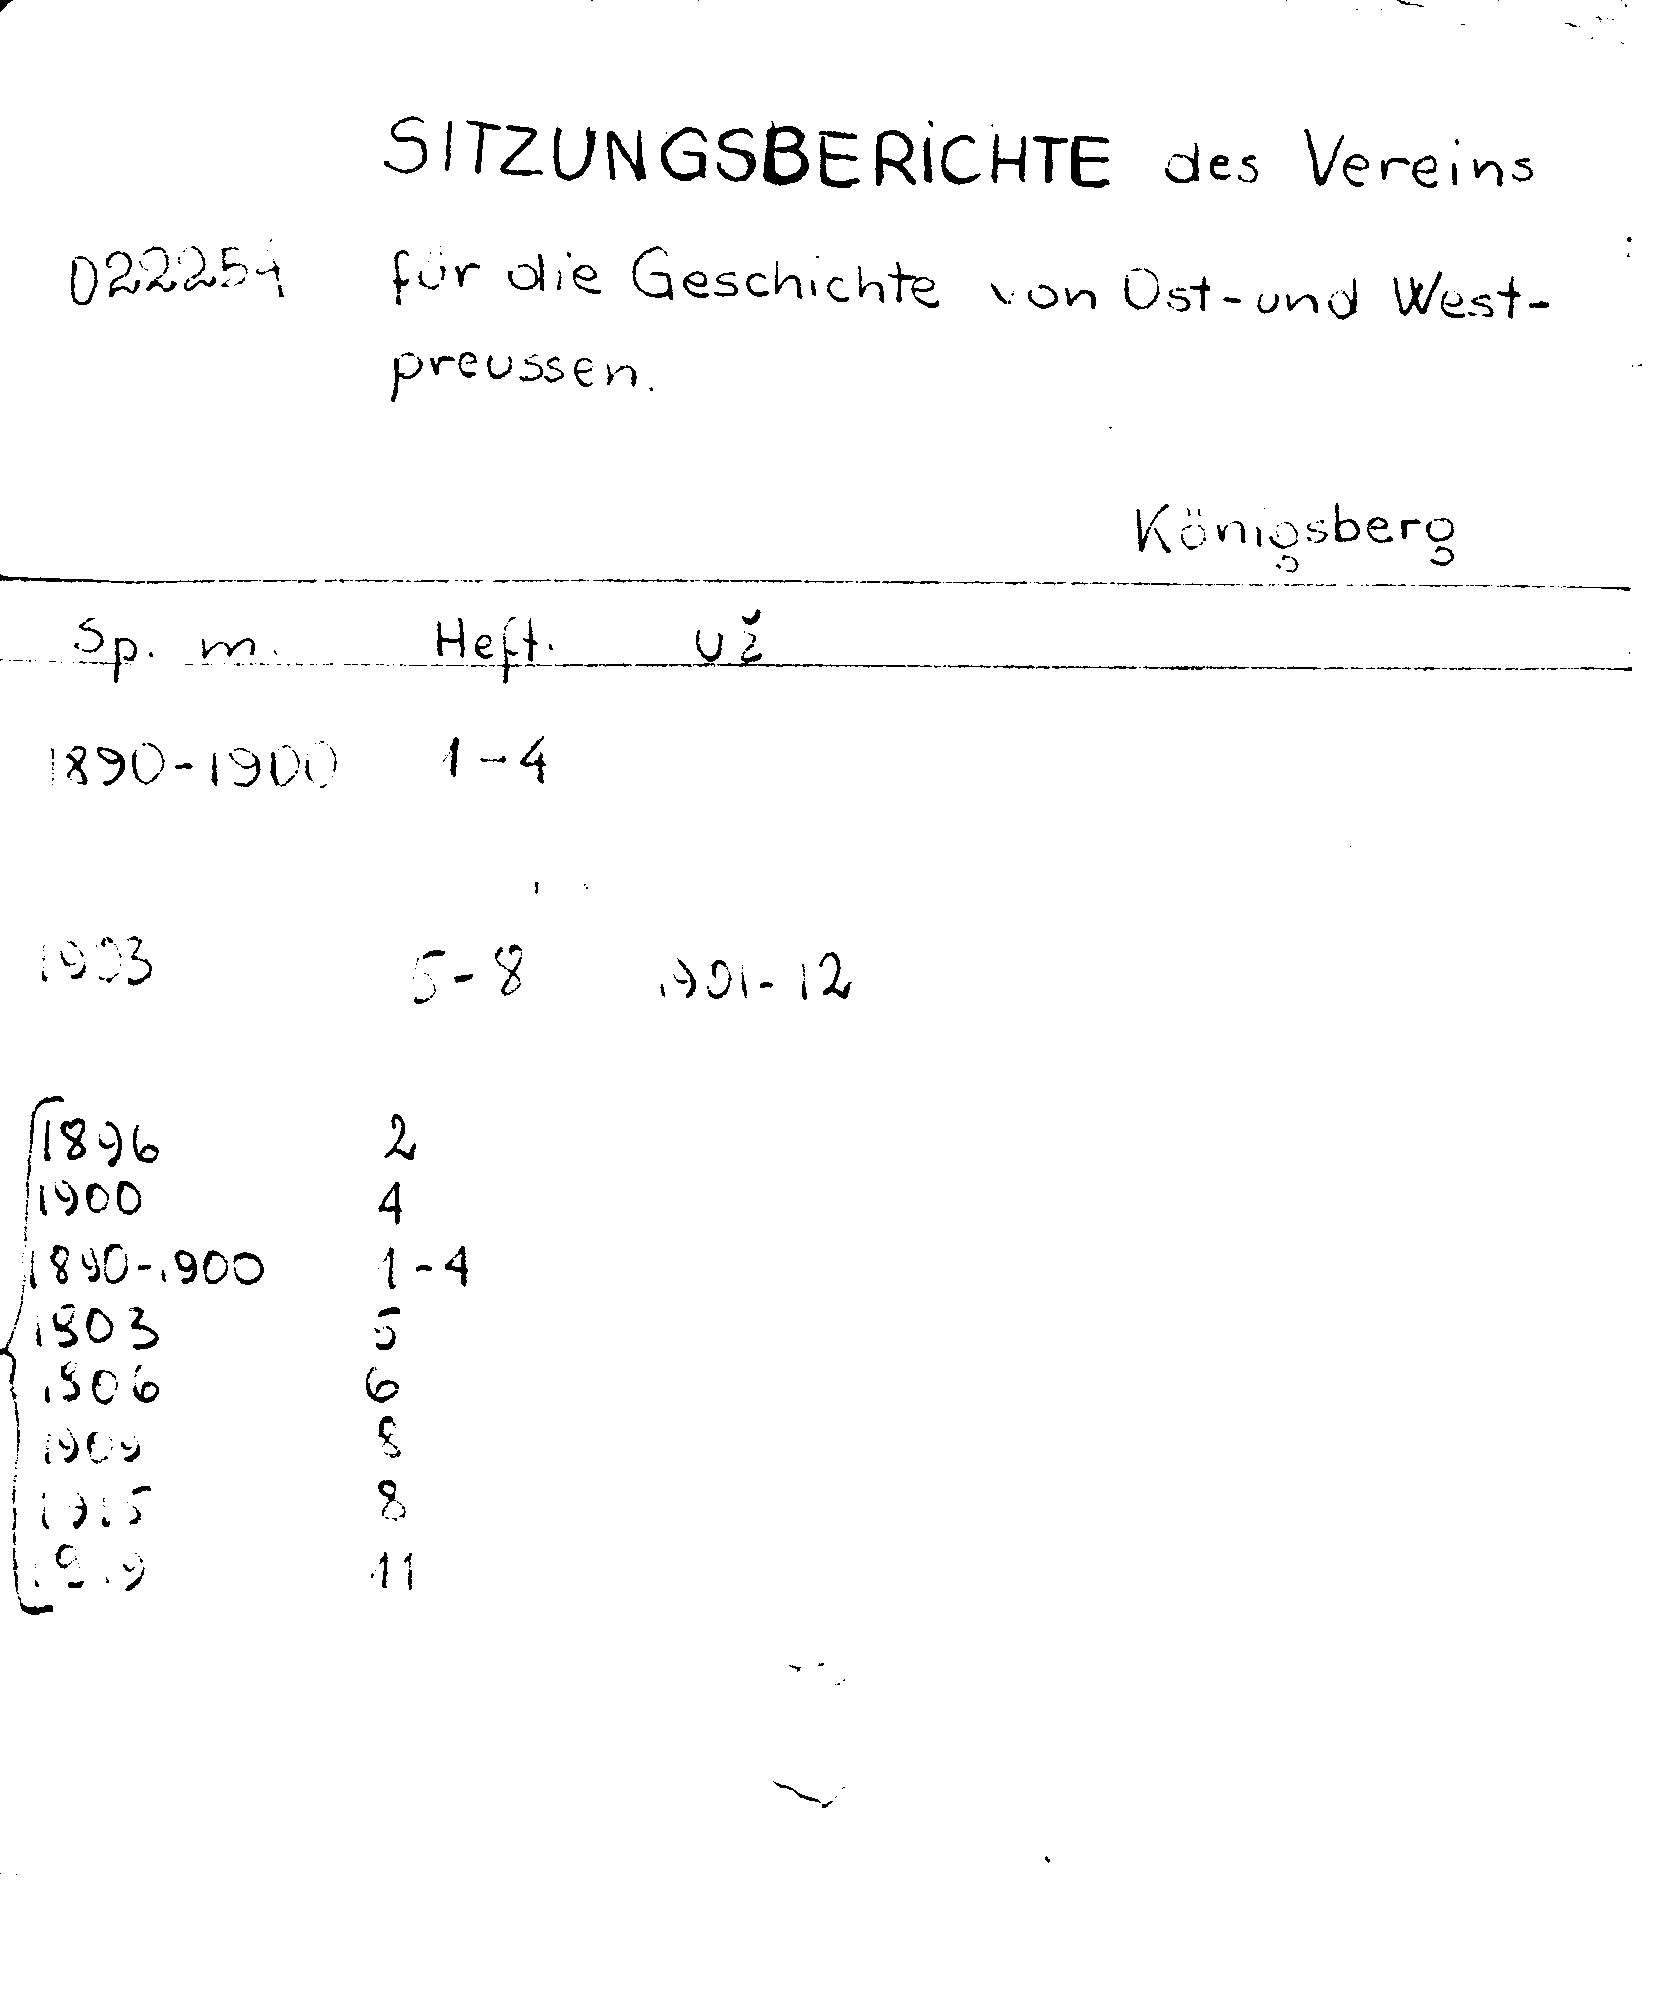 SITZUNGSBERICHTE des Vereins
022254 für die Geschichte von Ost-und West-
preussen.
Königsberg
Sp. m. Heft. už
1890-1900 1-4
1903 5-8 1901-12
1896 2
1900 4
1890-1900 1-4
1903 5
1906 6
1909 8
1915 8
1919 11